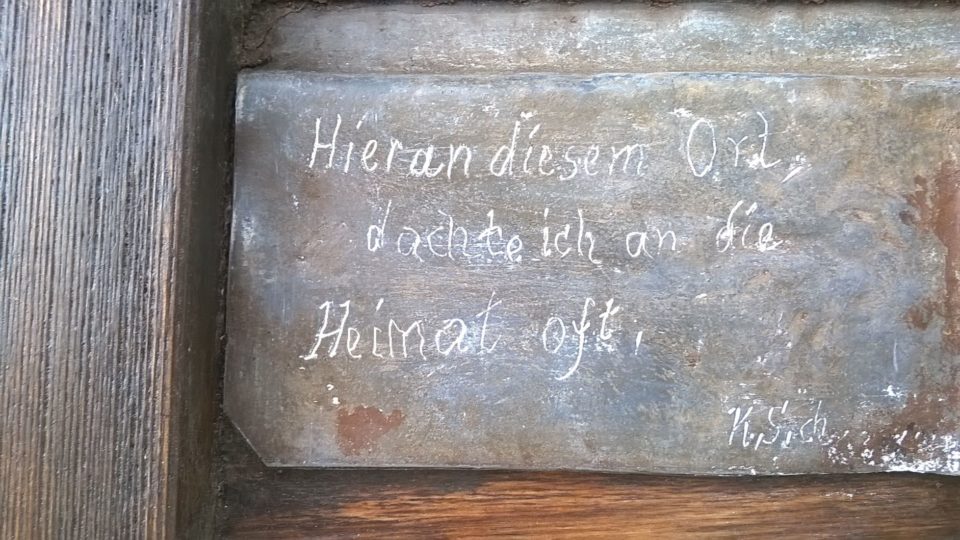 Hier an diesem Ort,
dachte ich an die
Heimat oft,
K. Sch...